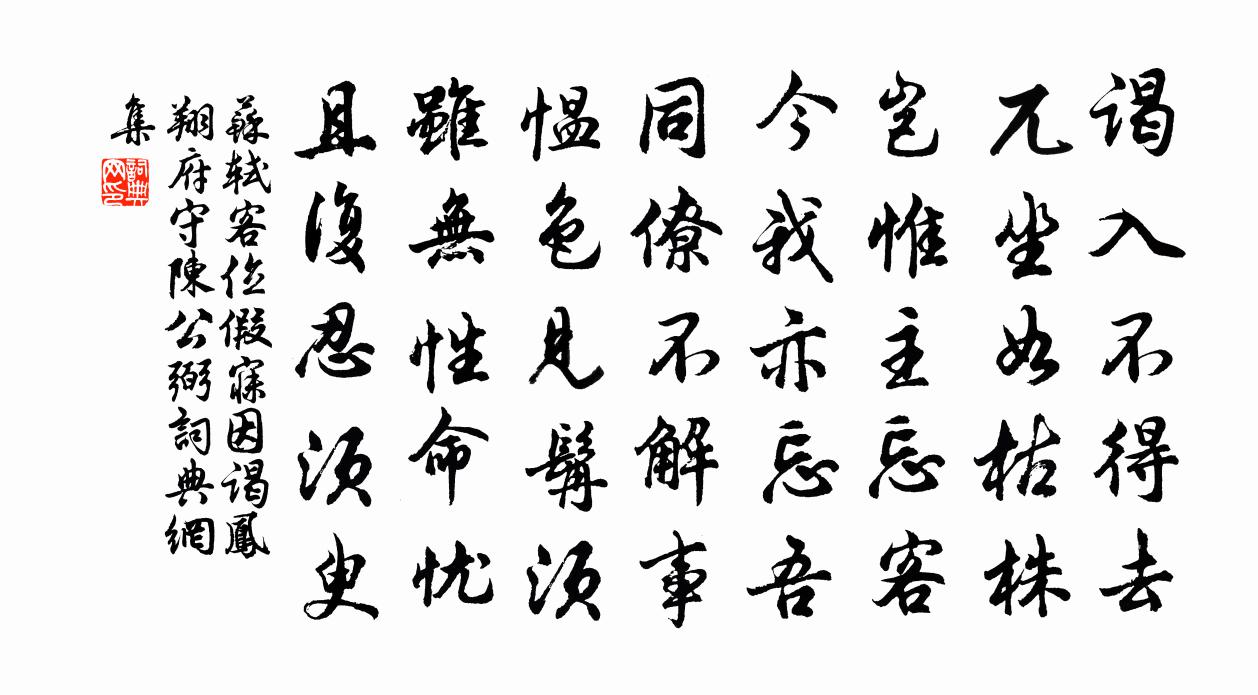 谒入不得去
兀坐如枯株
岂惟主忘客
今我亦忘吾
同僚不解事
愠色见髯须
雖無性命忧
且復忍须臾
蘇軾客位假寐因谒鳳
翔府守陳公弼詞典網
集
詞典網印